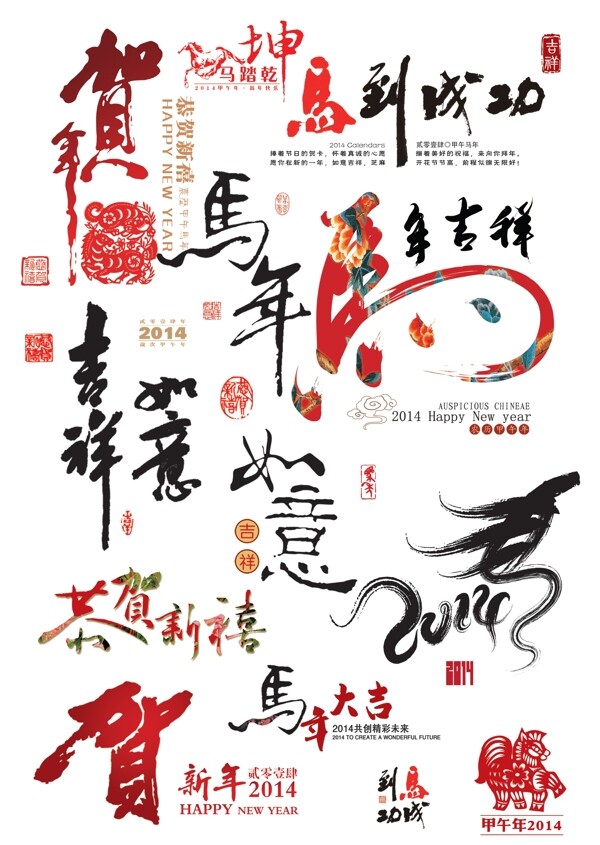 賀年
恭贺新禧
HAPPY NEW YEAR
农历甲午马年
坤
马踏乾
2014甲午年·新年快乐
馬到成功
2014 Calendars
捧着节日的贺卡，怀着真诚的心愿
愿你在新的一年，如意吉祥，芝麻
贰零壹肆〇甲午马年
揣着美好的祝福，来向你拜年。
开花节节高，前程似锦无限好！
吉祥
馬年
馬年吉祥
AUSPICIOUS CHINEAE
2014 Happy New year
农历甲午年
贰零壹肆年
2014
农历甲午年
吉祥
如意
恭賀新禧
如意
吉祥
2014
2014
恭賀新禧
賀
新年
贰零壹肆
2014
HAPPY NEW YEAR
馬年大吉
2014共创精彩未来
2014 TO CREATE A WONDERFUL FUTURE
馬到成功
甲午年2014